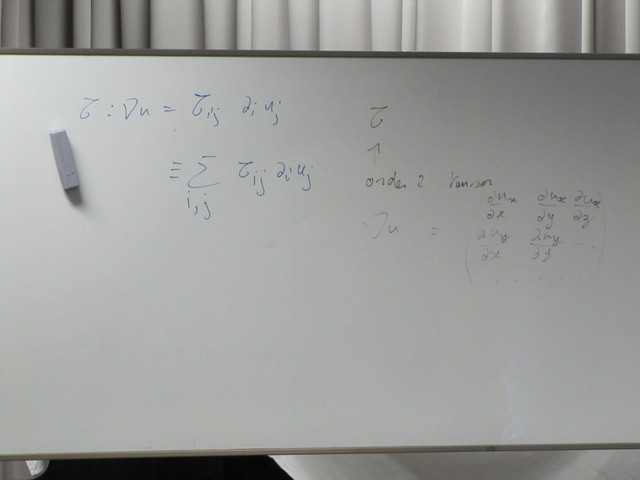 τ : ∇u = τij ∂i uj
≡ ∑i,j τij ∂i uj
τ
↑
order 2 tensor
∇u = ( ∂ux/∂x ∂ux/∂y ∂ux/∂z
∂uy/∂x ∂uy/∂y ...
... )